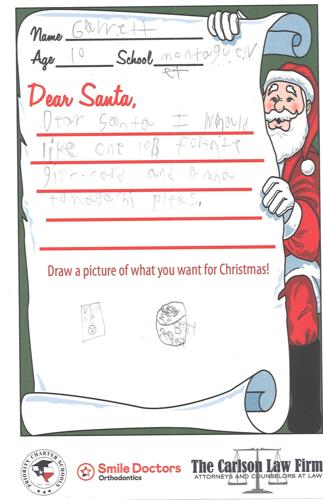 Name Garrett
Age 10 School montague V
et
Dear Santa,
Dear Santa I Whould
like one 10$ fortnite
gift-card and anna
tomagachi pleas.
Draw a picture of what you want for Christmas!
PRIORITY CHARTER SCHOOLS
Smile Doctors
Orthodontics
The Carlson Law Firm
ATTORNEYS AND COUNSELORS AT LAW